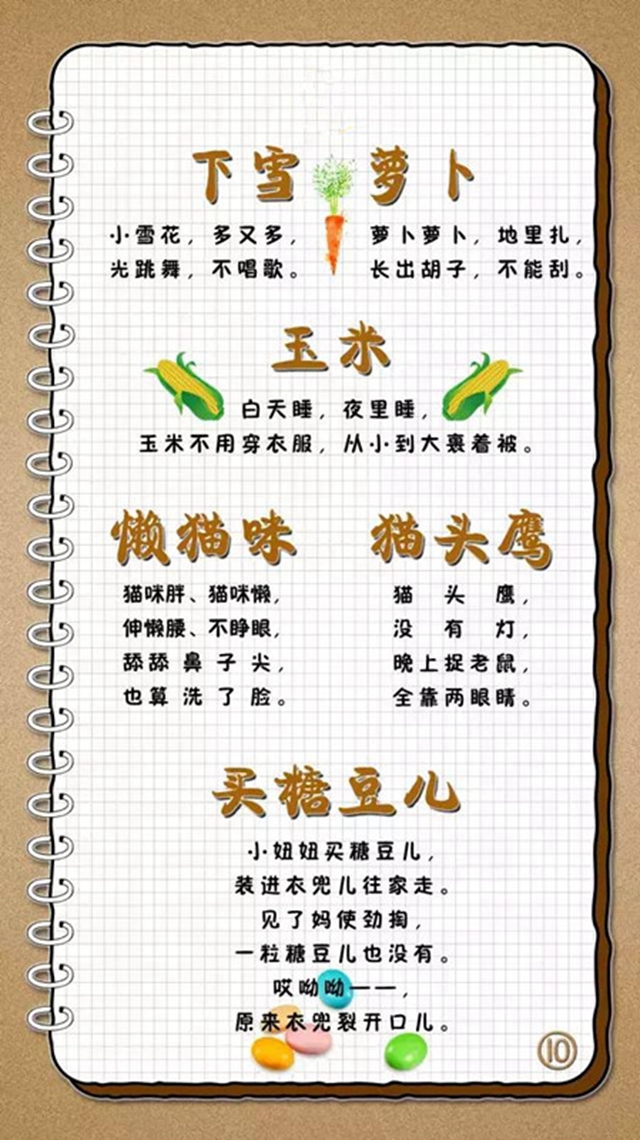 下雪
小雪花，多又多，
光跳舞，不唱歌。
萝卜
萝卜萝卜，地里扎，
长出胡子，不能刮。
玉米
白天睡，夜里睡，
玉米不用穿衣服，从小到大裹着被。
懒猫咪
猫咪胖、猫咪懒，
伸懒腰、不睁眼，
舔舔鼻子尖，
也算洗了脸。
猫头鹰
猫头鹰，
没有灯，
晚上捉老鼠，
全靠两眼睛。
买糖豆儿
小妞妞买糖豆儿，
装进衣兜儿往家走。
见了妈使劲掏，
一粒糖豆儿也没有。
哎呦呦——，
原来衣兜裂开口儿。
10